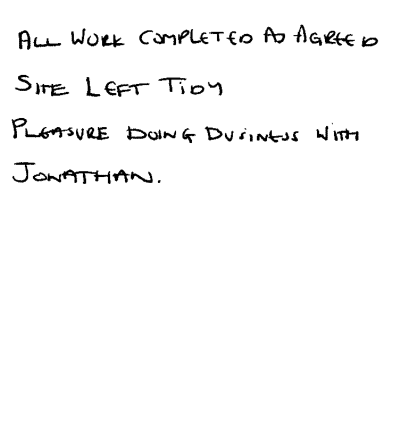 ALL WORK COMPLETED AS AGREED
SITE LEFT TIDY
PLEASURE DOING BUSINESS WITH
JONATHAN.